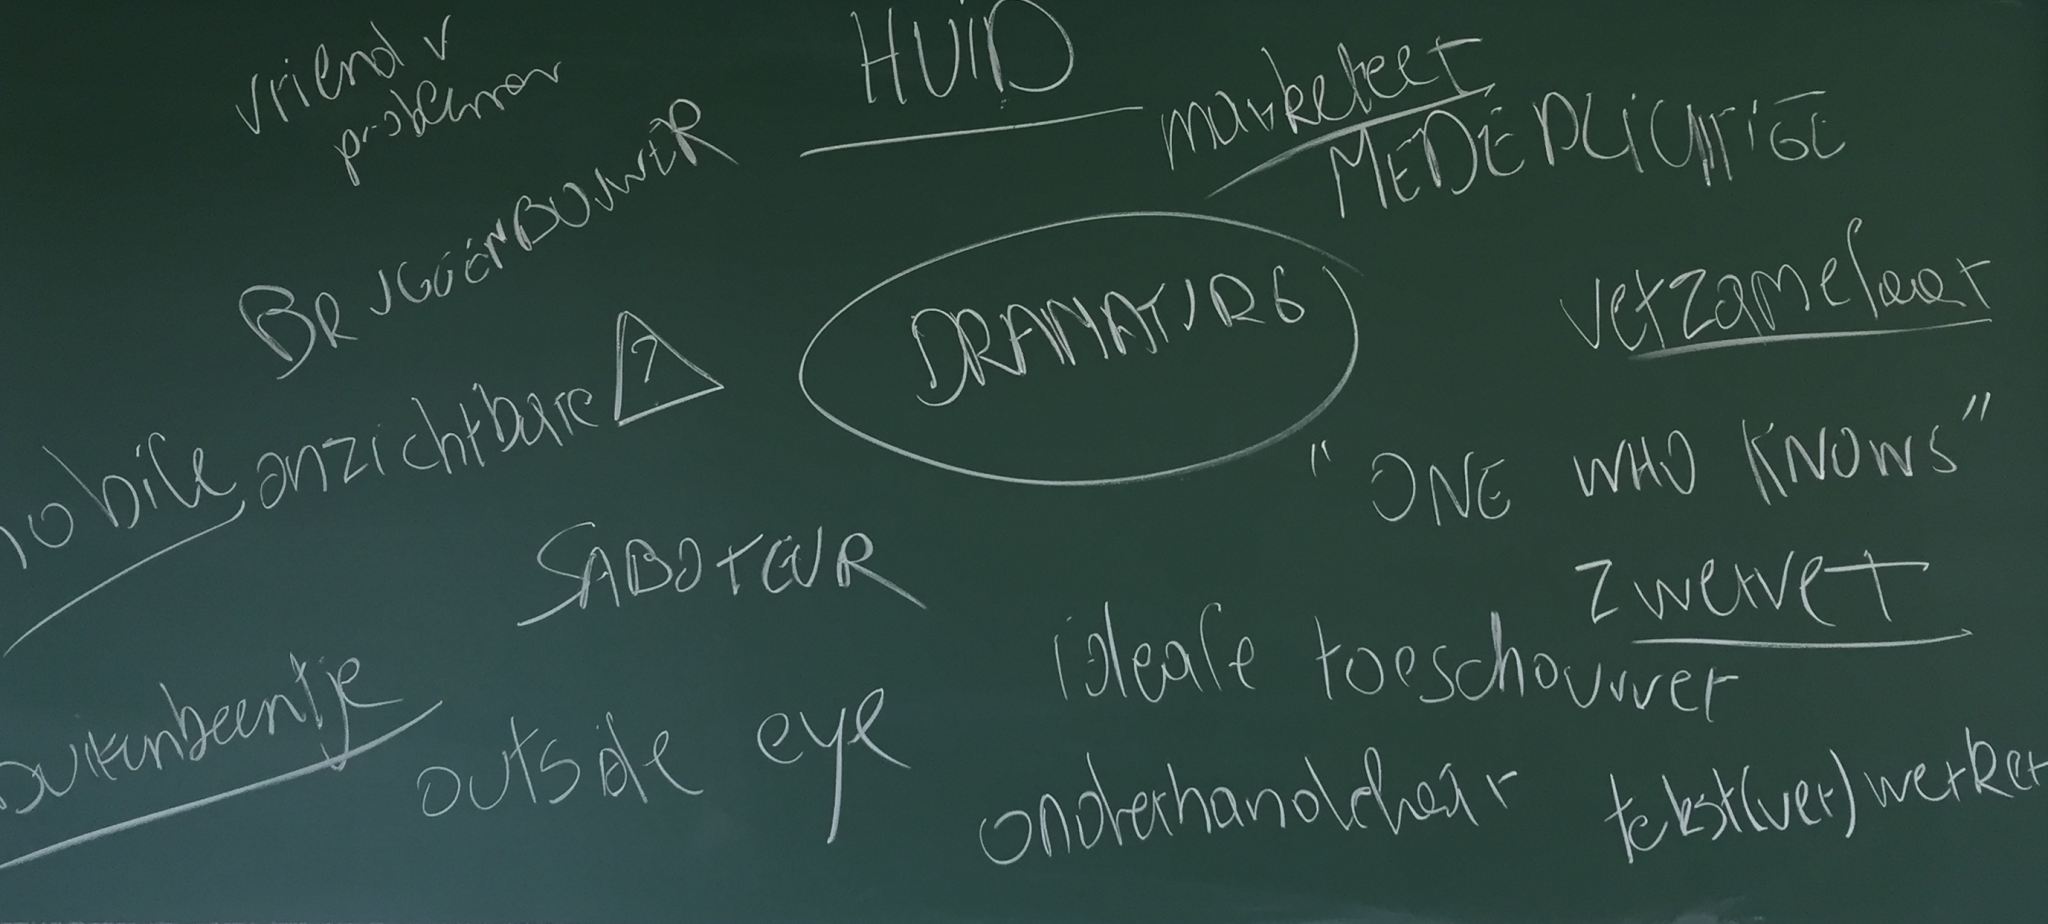 HUID
vriend v
problemen
marketeer
MEDEPLICHTIGE
BRUGGENBOUWER
DRAMATURG
verzamelaar
?
mobile onzichtbare
"ONE WHO KNOWS"
SABOTEUR
zwerver
ideale toeschouwer
buitenbeentje
outside eye
onderhandelaar
tekst(ver)werker